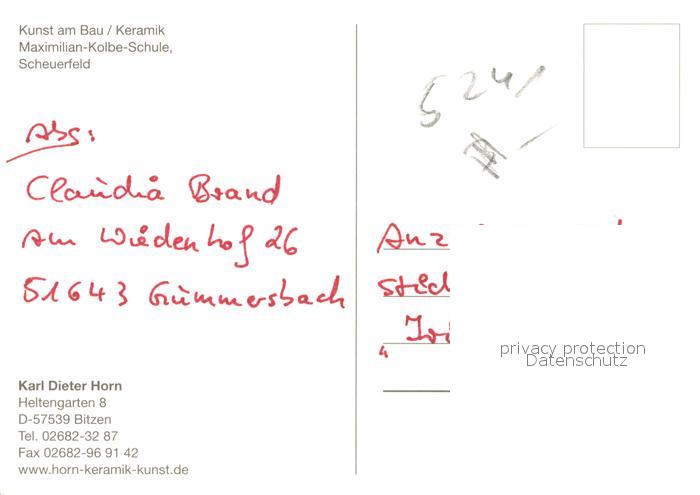 Kunst am Bau / Keramik
Maximilian-Kolbe-Schule,
Scheuerfeld
Abs:
Claudia Brand
Am Wiedenhof 26
51643 Gummersbach
Karl Dieter Horn
Heltengarten 8
D-57539 Bitzen
Tel. 02682-32 87
Fax 02682-96 91 42
www.horn-keramik-kunst.de
524,
privacy protection
Datenschutz